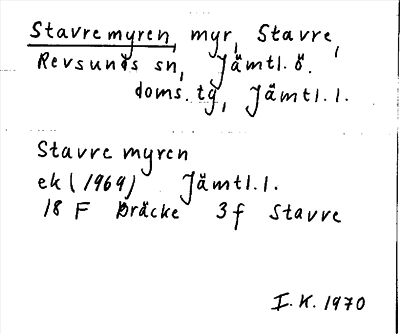 Stavremyren, myr, Stavre,
Revsunds sn, Jämtl. ö.
doms. tg, Jämtl. l.
Stavremyren
ek (1969) Jämtl. l.
18 F Bräcke 3 f Stavre
I. K. 1970